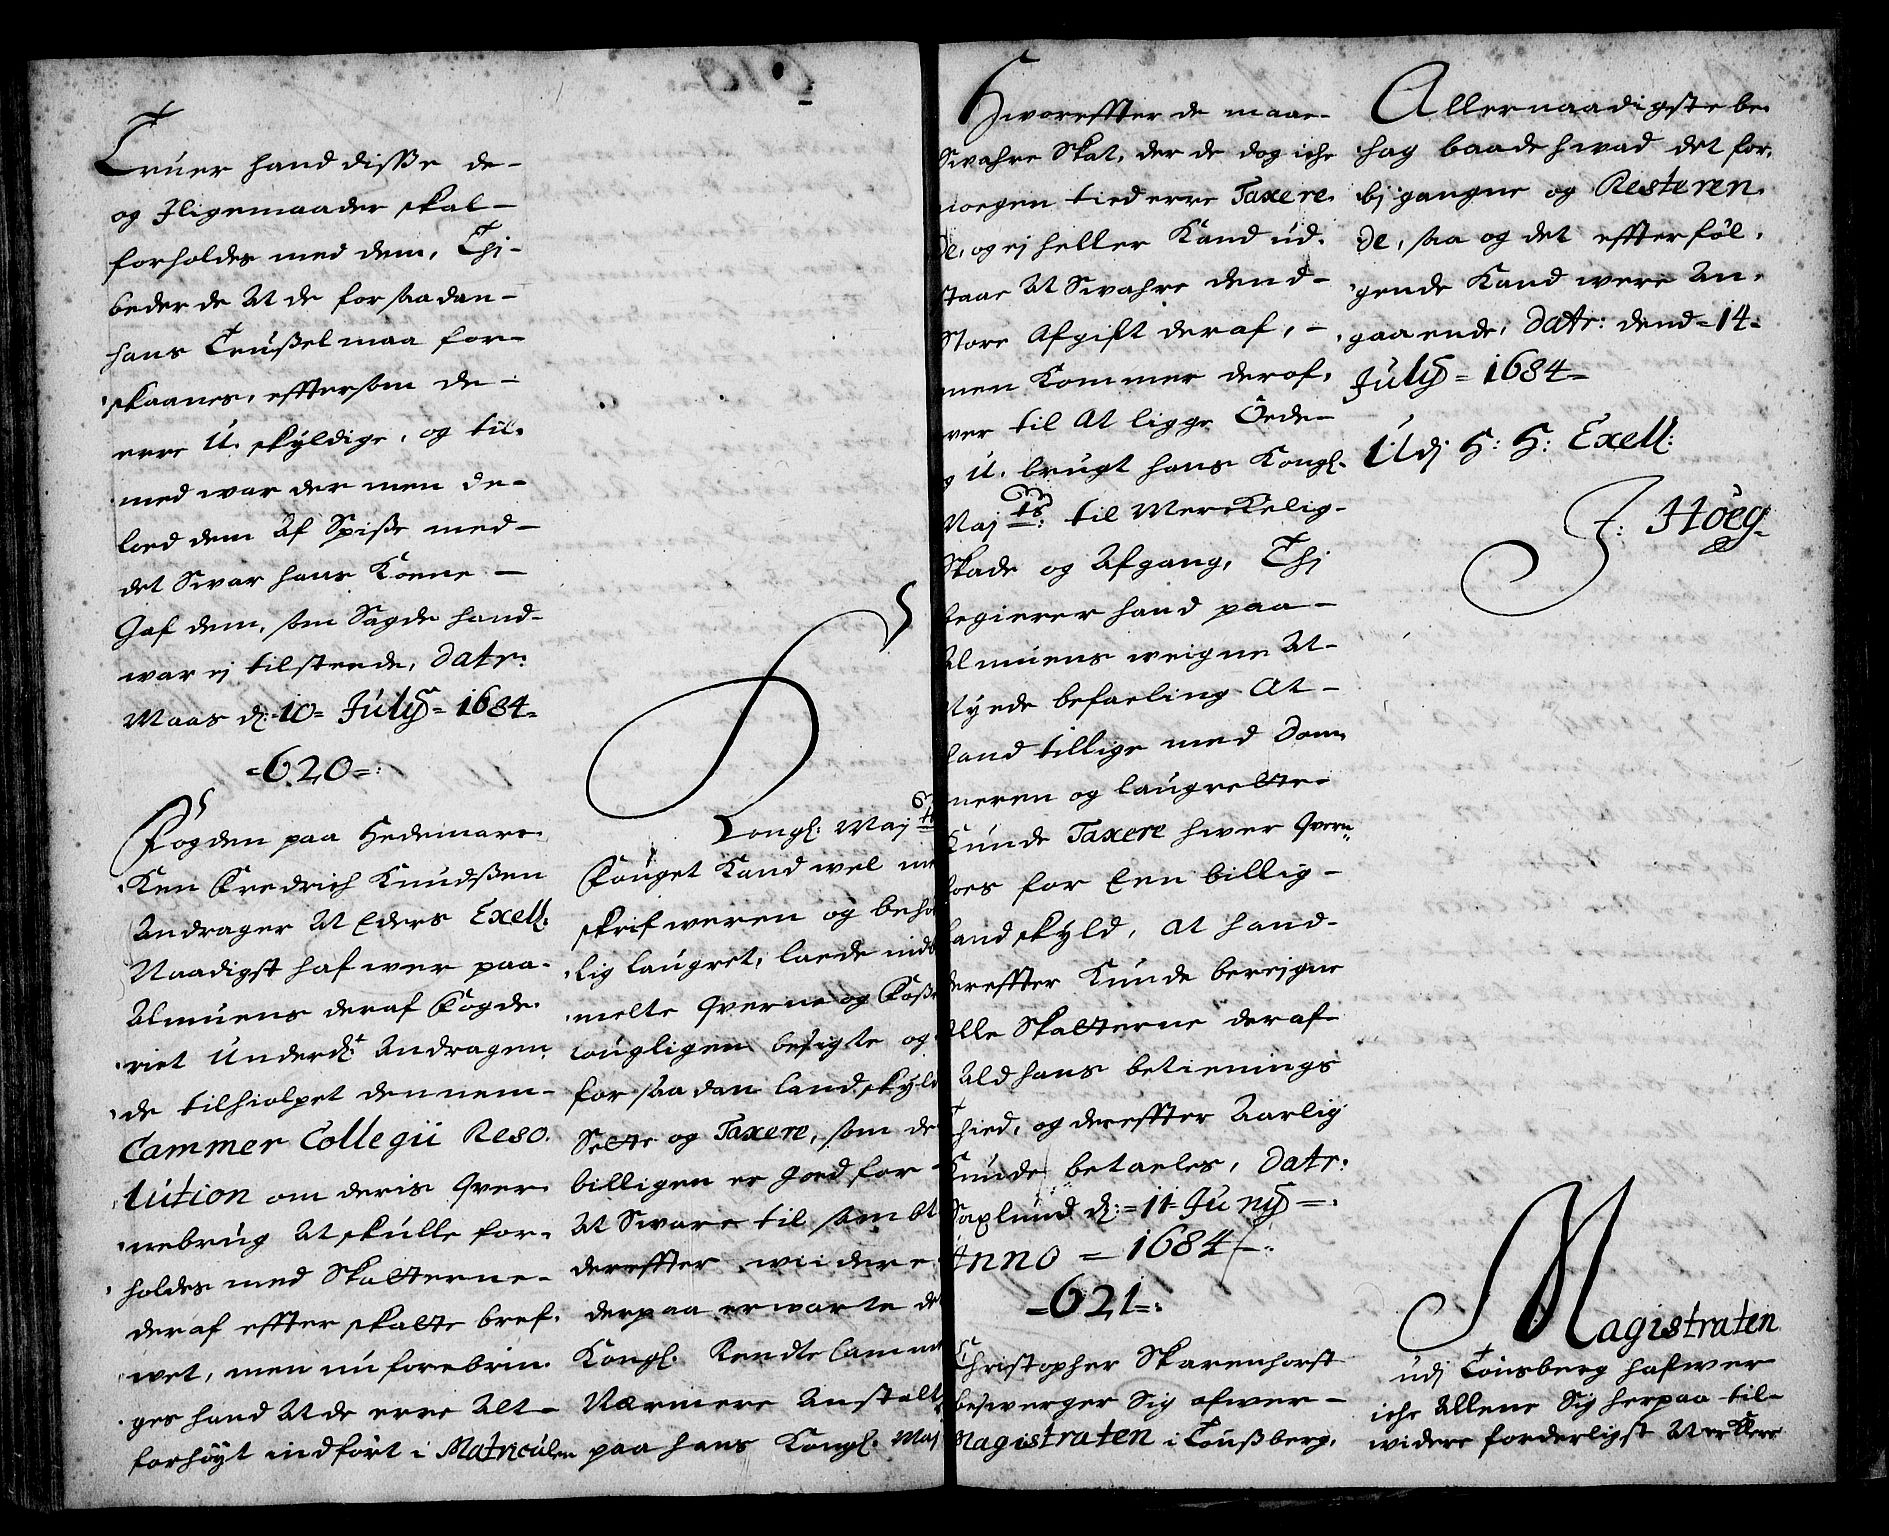 Truer hand disse de-
og Iligemaader skal-
forholdes med dem, Thj-
beder de At de for saadan-
hans Trussel maa for-
skaanes, effterson de-
erre U. skyldige, og til-
med war der men de-
loed dem Af Spisse med-
det Swar hans Koene -
Gaf dem, som Sagde hand-
war ej tilstende, Datr:
Moss d: 10 = Julÿ = 1684 =
= 620 =:
Fogden paa Hedemare-
ken Fredrich Knudssen
Andrager At Eders Exell:
Naadigst hafwer paa-
Almuens deraf Fogde-
riet Underd: Andragen-
de tilhiolpet dennem-
Cammer Collegii Reso-
lution om deris Qver-
nebrug At skulle for-
holdes med Skatterne-
deraf effter skatte bref-
wet, men nu forebrin-
ges hand At de erre Alt-
forhøyt indført i Matriculen
Kongl: Maj ts
Fouget Kand wel med
skrifweren og beho
lig laugret, lade indbe
melte Qverne og Fosse
lougligen besigte og
for saadan landskyld
Sette og Taxere, som de
billigen er goed for -
At Sware til som bt
dereffter wiidere
derpaa erwarte de
Kongl. Rendte Cammer
Nærmere Anstalt
paa hans Kongl: Maj
Hworeffter de maae-
Swahre Skat, der de dog iche
noegen tied erre Taxere-
de, og ej heller Kand ud-
staae At Swahre dend-
Store Afgift deraf, -
men Kommer derof-
ver til At ligge Øede-
og U. brugt hans Kongl.
Maj ts: til Merckelig-
Skade og Afgang, Thj
begierer hand paa-
Almuens weigne At-
Nyde befaeling At-
hand tillige med Dom-
meren og laugrette-
Kunde Taxere hwer Qvern-
foes for Een billig-
landskyld, At hand-
dereffter Kunde bereigne
Alle Skatterne deraf-
Ald hans betienings
Thied, og dereffter Aarlig
Kunde betaeles, Datr:
Saxlund d: = 11 = Junÿ =
Anno = 1684 =
= 621 =:
Christopher Skarenhorst
beswerger Sig ofwer-
Magistraten i Tøussberg,
Allernaadigste be-
hag baade hwad det for-
bj gangne og Resteren-
de, saa og det effterføl-
gende Kand were An-
gaaende, Datr: dend = 14 =
Julÿ = 1684 =
Udj H: H: Exell:
J: Høeg
Magistraten
udj Tønsberg hafwer
iche Allene Sig herpaa til-
widere forderligst At erklere